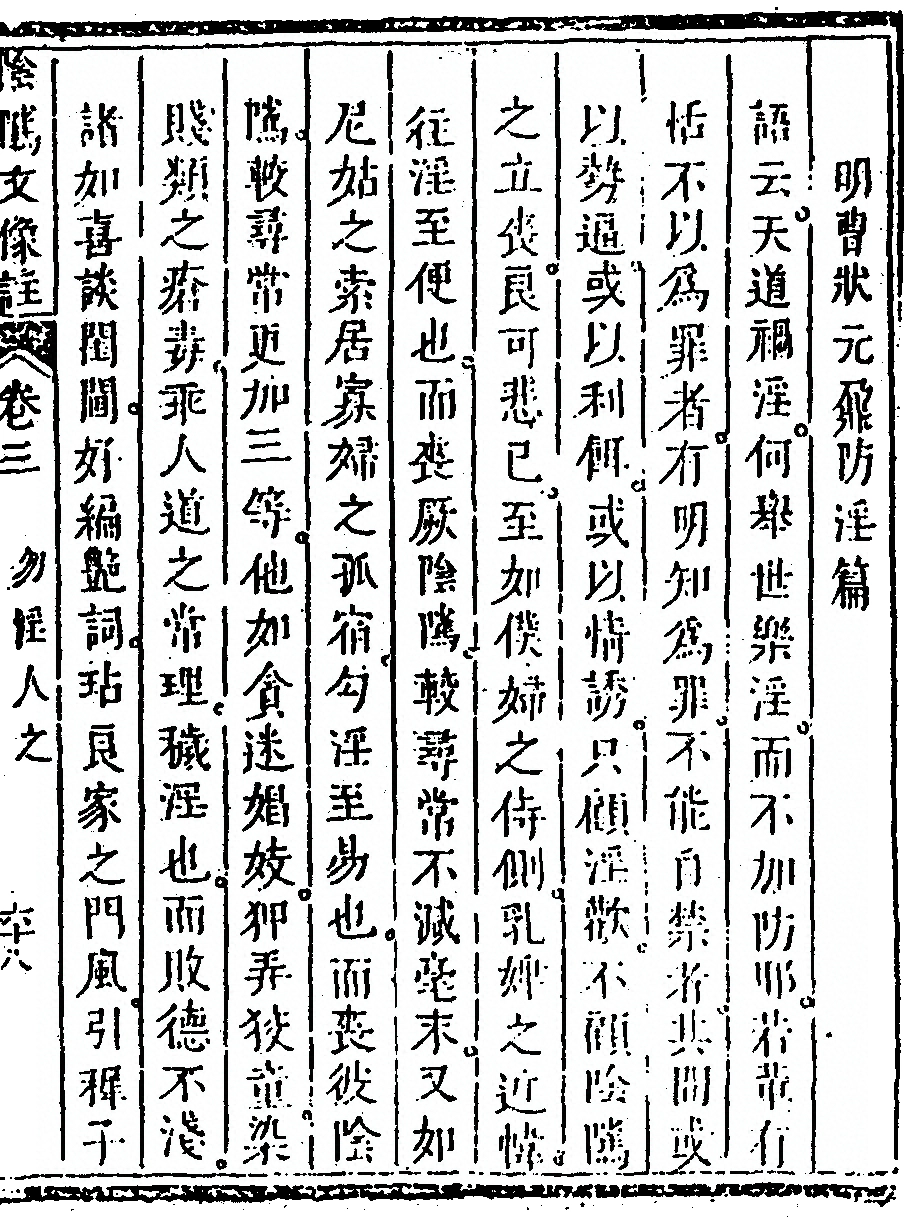 明曹狀元鼐防淫篇
語云天道禍淫何舉世樂淫而不加防耶若輩有
恬不以為罪者有明知為罪不能自禁者其間或
以勢逼或以利餌或以情誘只顧淫歡不顧陰隲
之立喪良可悲已至如僕婦之侍側乳婢之近幃
往淫至便也而喪厥陰隲較尋常不減毫末又如
尼姑之索居寡婦之孤宿勾淫至易也而喪彼陰
隲較尋常更加三等他如貪迷娼妓狎弄狡童染
賤類之瘡毒乖人道之常理穢淫也而敗德不淺
諸如喜談閨閫好編艶詞玷良家之門風引穉子
陰隲文像註
卷三
勿淫人之
六十八